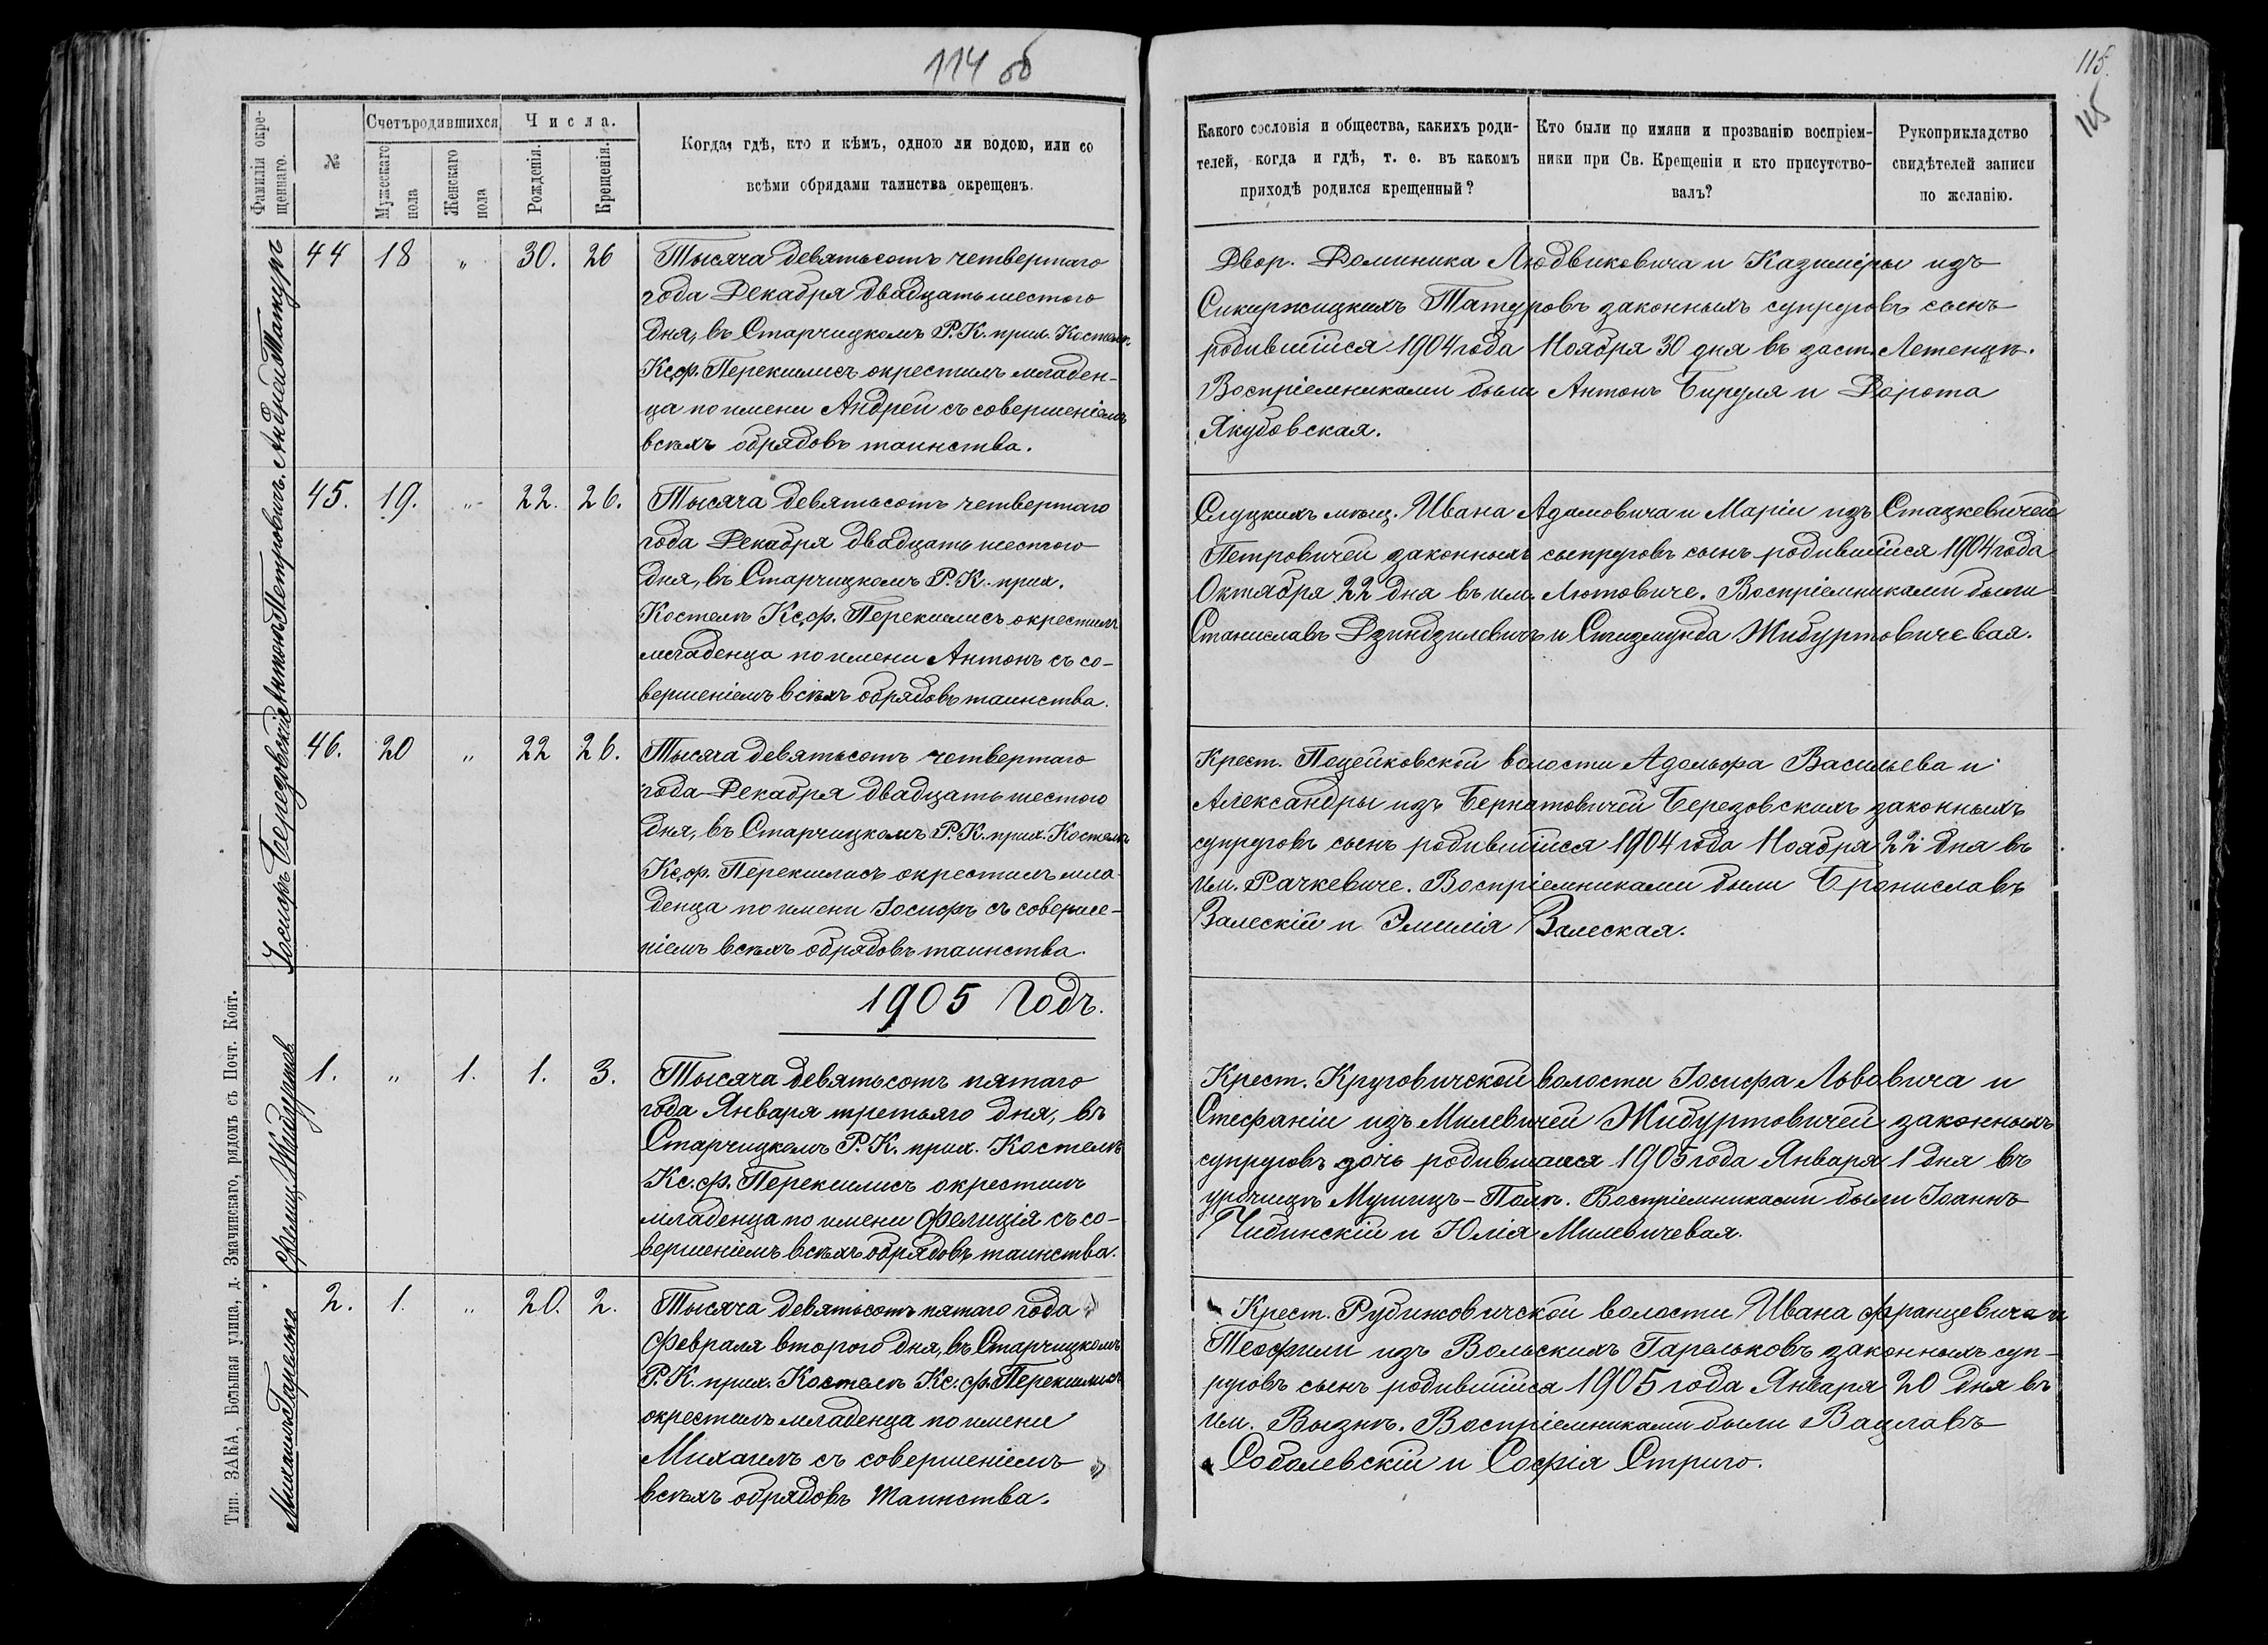 114 об
115.
115
Фамилія окре-
щеннаго.
№
Счетъ родившихся
Мужескаго
пола
Женскаго
пола
Числа.
Рожденія.
Крещенія.
Когда, гдѣ, кто и кѣмъ, одною ли водою, или со
всѣми обрядами таинства окрещенъ.
Какого сословія и общества, какихъ роди-
телей, когда и гдѣ, т. е. въ какомъ
приходѣ родился крещенный?
Кто были по имяни и прозванію воспріем-
ники при Св. Крещеніи и кто присутство-
валъ?
Рукоприкладство
свидѣтелей записи
по желанію.
Андрей Татуръ
44 18 „ 30. 26
Тысяча девятьсотъ четвертаго
года Декабря двадцать шестого
дня, въ Старчицкомъ Р.К. прих. Костелѣ
Кс. Ф. Перекшлисъ окрестилъ младен-
ца по имени Андрей съ совершеніемъ
всѣхъ обрядовъ таинства.
Двор. Доминика Людвиковича и Казиміры изъ
Сикиржицкихъ Татуровъ законныхъ супруговъ сынъ
родившійся 1904 года Ноября 30 дня въ заст. Летенцъ.
Воспріемниками были Антонъ Бируля и Дорота
Якубовская.
Антонъ Петровичъ
45. 19. „ 22. 26.
Тысяча девятьсотъ четвертаго
года Декабря двадцать шестого
дня, въ Старчицкомъ Р.К. прих.
Костелѣ Кс. Ф. Перекшлисъ окрестилъ
младенца по имени Антонъ съ со-
вершеніемъ всѣхъ обрядовъ таинства.
Слуцкихъ мѣщ. Ивана Адамовича и Маріи изъ Стацкевичей
Петровичей законныхъ сыпруговъ сынъ родившійся 1904 года
Октября 22 дня въ им. Лютовиче. Воспріемниками были
Станиславъ Дзиндзилевичъ и Сгизмунда Жибуртовичевая.
Іосифъ Березовскій
46. 20 „ 22 26.
Тысяча девятьсотъ четвертаго
года Декабря двадцать шестого
дня, въ Старчицкомъ Р.К. прих. Костелѣ
Кс. Ф. Перекшлисъ окрестилъ мла-
денца по имени Іосифъ съ соверше-
ніемъ всѣхъ обрядовъ таинства.
Крест. Поцейковской волости Адольфа Васильева и
Александры изъ Бернатовичей Березовскихъ законныхъ
супруговъ сынъ родившійся 1904 года Ноября 22 дня въ
им. Рачкевиче. Воспріемниками были Брониславъ
Залескій и Эмилія Залеская.
1905 Годъ.
1. „ 1. 1. 3.
Тысяча девятьсотъ пятаго
года Января третьяго дня, въ
Старчицкомъ Р.К. прих. Костелѣ
Кс. Ф. Перекшлисъ окрестилъ
младенца по имени Фелиція съ со-
вершеніемъ всѣхъ обрядовъ таинства.
Крест. Круговичской волости Іосифа Львовича и
Стефаніи изъ Милевичей Жибуртовичей законныхъ
супруговъ дочь родившаяся 1905 года Января 1 дня въ
урочищѣ Мушицъ-Полѣ. Воспріемниками были Іоаннъ
Чибинскій и Юлія Милевичевая.
Михаилъ Гарелько
2. 1. „ 20. 2.
Тысяча девятьсотъ пятаго года
Февраля второго дня, въ Старчицкомъ
Р.К. прих. Костелѣ Кс. Ф. Перекшлисъ
окрестилъ младенца по имени
Михаилъ съ совершеніемъ
всѣхъ обрядовъ таинства.
Крест. Рубижовичской волости Ивана Францевича и
Теофили изъ Вольскихъ Гарельковъ законныхъ суп-
руговъ сынъ родившійся 1905 года Января 20 дня въ
им. Вызнѣ. Воспріемниками были Вацлавъ
Соболевскій и Софія Стриго.
Тип. ЗАКА, Большая улица, д. Значинскаго, рядомъ съ Почт. Конт.